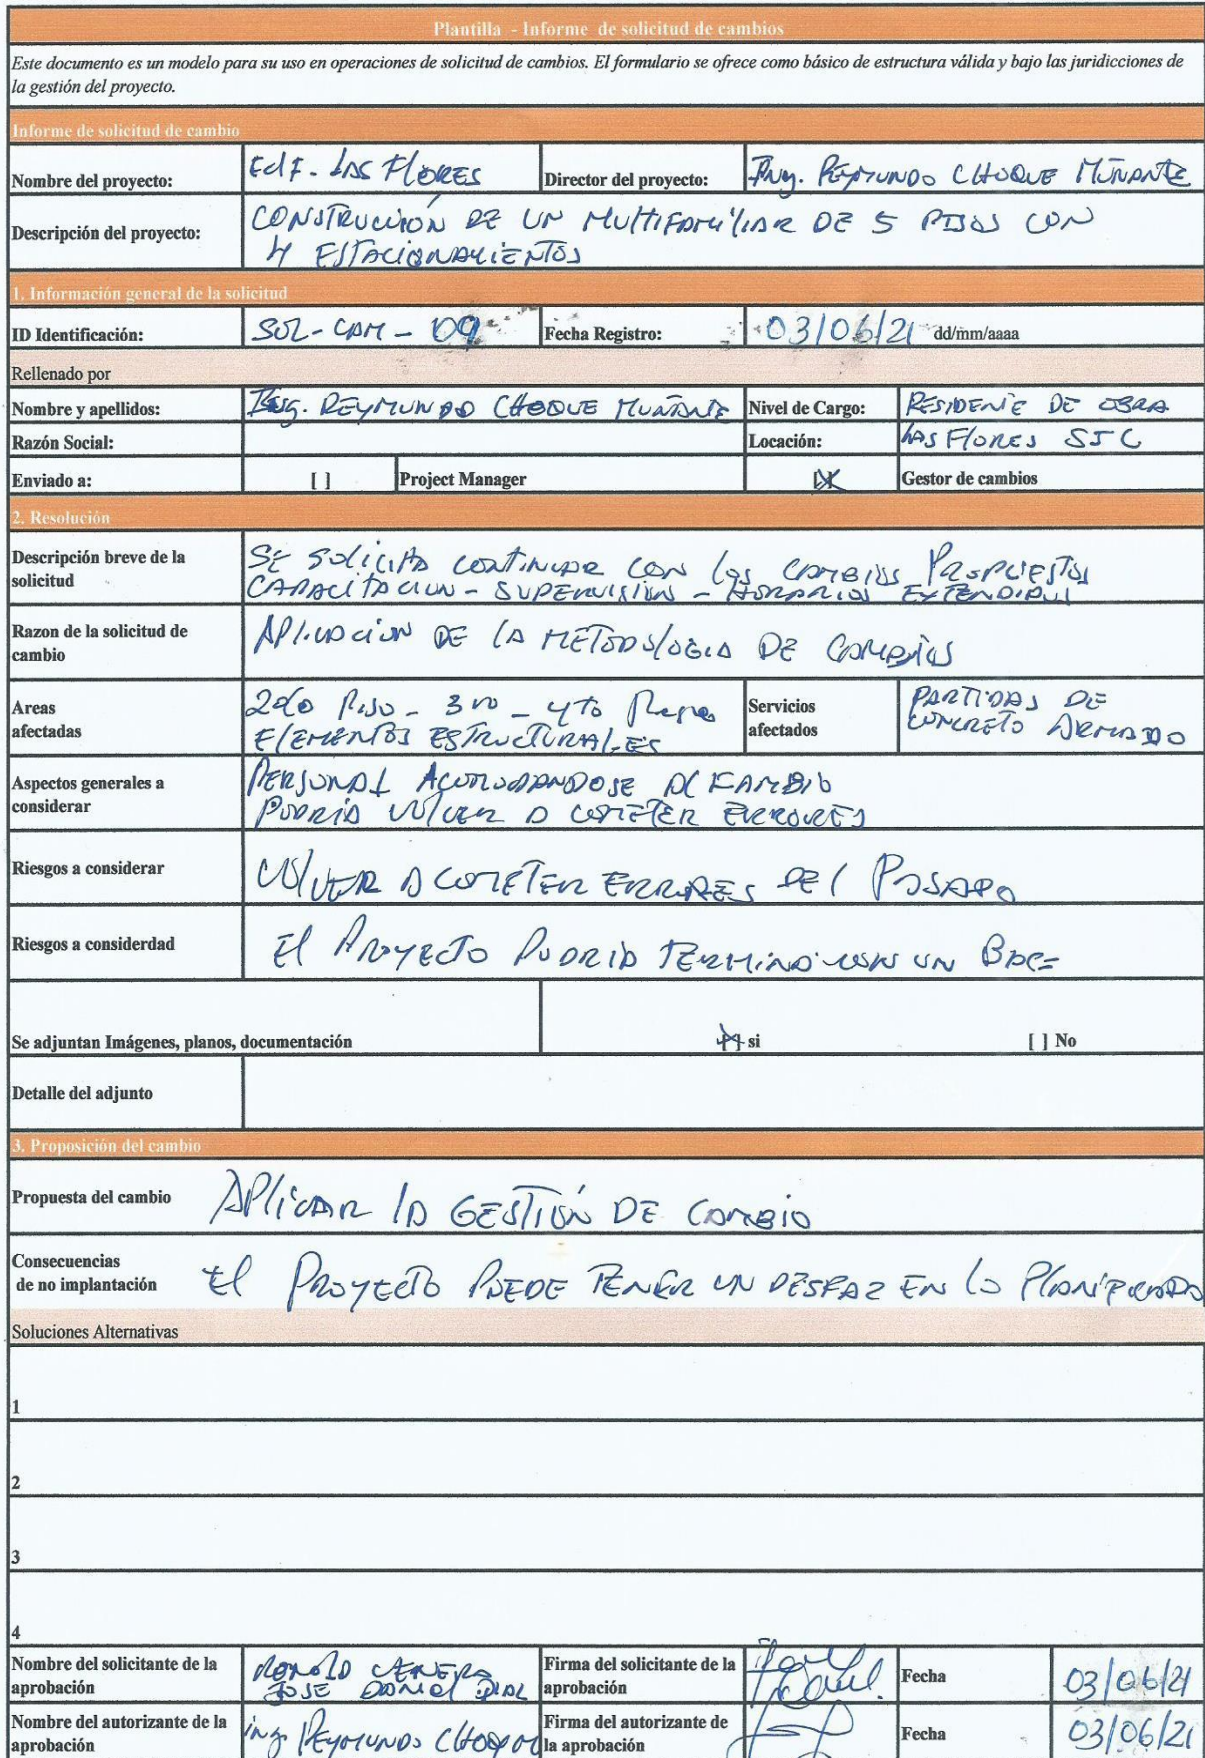 Plantilla - Informe de solicitud de cambios
Este documento es un modelo para su uso en operaciones de solicitud de cambios. El formulario se ofrece como básico de estructura válida y bajo las juridicciones de
la gestión del proyecto.
Informe de solicitud de cambio
Nombre del proyecto: Edif. LAS FLORES Director del proyecto: Ing. REYMUNDO CHOQUE MUÑANTE
Descripción del proyecto: CONSTRUCCIÓN DE UN MULTIFAMILIAR DE 5 PISOS CON
4 ESTACIONAMIENTOS
1. Información general de la solicitud
ID Identificación: SOL-CAM-09 Fecha Registro: 03/06/21 dd/mm/aaaa
Rellenado por
Nombre y apellidos: Ing. REYMUNDO CHOQUE MUÑANTE Nivel de Cargo: RESIDENTE DE OBRA
Razón Social: Locación: LAS FLORES SJC
Enviado a: [ ] Project Manager [X] Gestor de cambios
2. Resolución
Descripción breve de la
solicitud
SE SOLICITA CONTINUAR CON LOS CAMBIOS PROPUESTOS
CAPACITACION - SUPERVISION - HORARIOS EXTENDIDOS
Razon de la solicitud de
cambio
APLICACION DE LA METODOLOGIA DE CAMBIOS
Areas
afectadas
2do PISO - 3ro - 4to
ELEMENTOS ESTRUCTURALES
Servicios
afectados
PARTIDAS DE
CONCRETO ARMADO
Aspectos generales a
considerar
PERSONAL ACOMODANDOSE AL KAMBIO
PODRIA VOLVER A COMETER ERRORES
Riesgos a considerar VOLVER A COMETER ERRORES DEL PASADO
Riesgos a considerdad El PROYECTO PODRIA TERMINAR CON UN
Se adjuntan Imágenes, planos, documentación [X] si [ ] No
Detalle del adjunto
3. Proposición del cambio
Propuesta del cambio APLICAR LA GESTIÓN DE CAMBIO
Consecuencias
de no implantación
El PROYECTO PUEDE TENER UN DESFAZ EN LO PLANIFICADO
Soluciones Alternativas
1
2
3
4
Nombre del solicitante de la
aprobación
JOSE DANIEL
Firma del solicitante de la
aprobación
Fecha 03/06/21
Nombre del autorizante de la
aprobación
ing. REYMUNDO CHOQUE M
Firma del autorizante de
la aprobación
Fecha 03/06/21